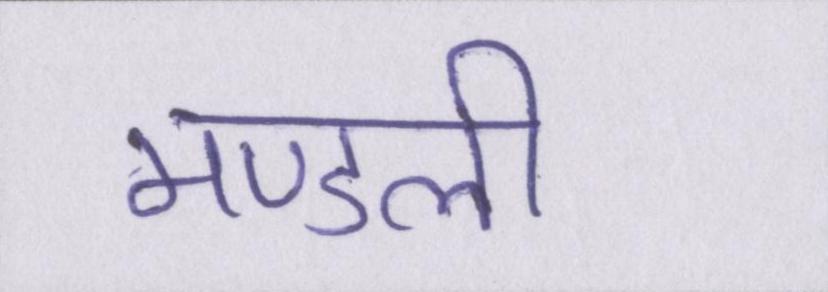 मण्डली